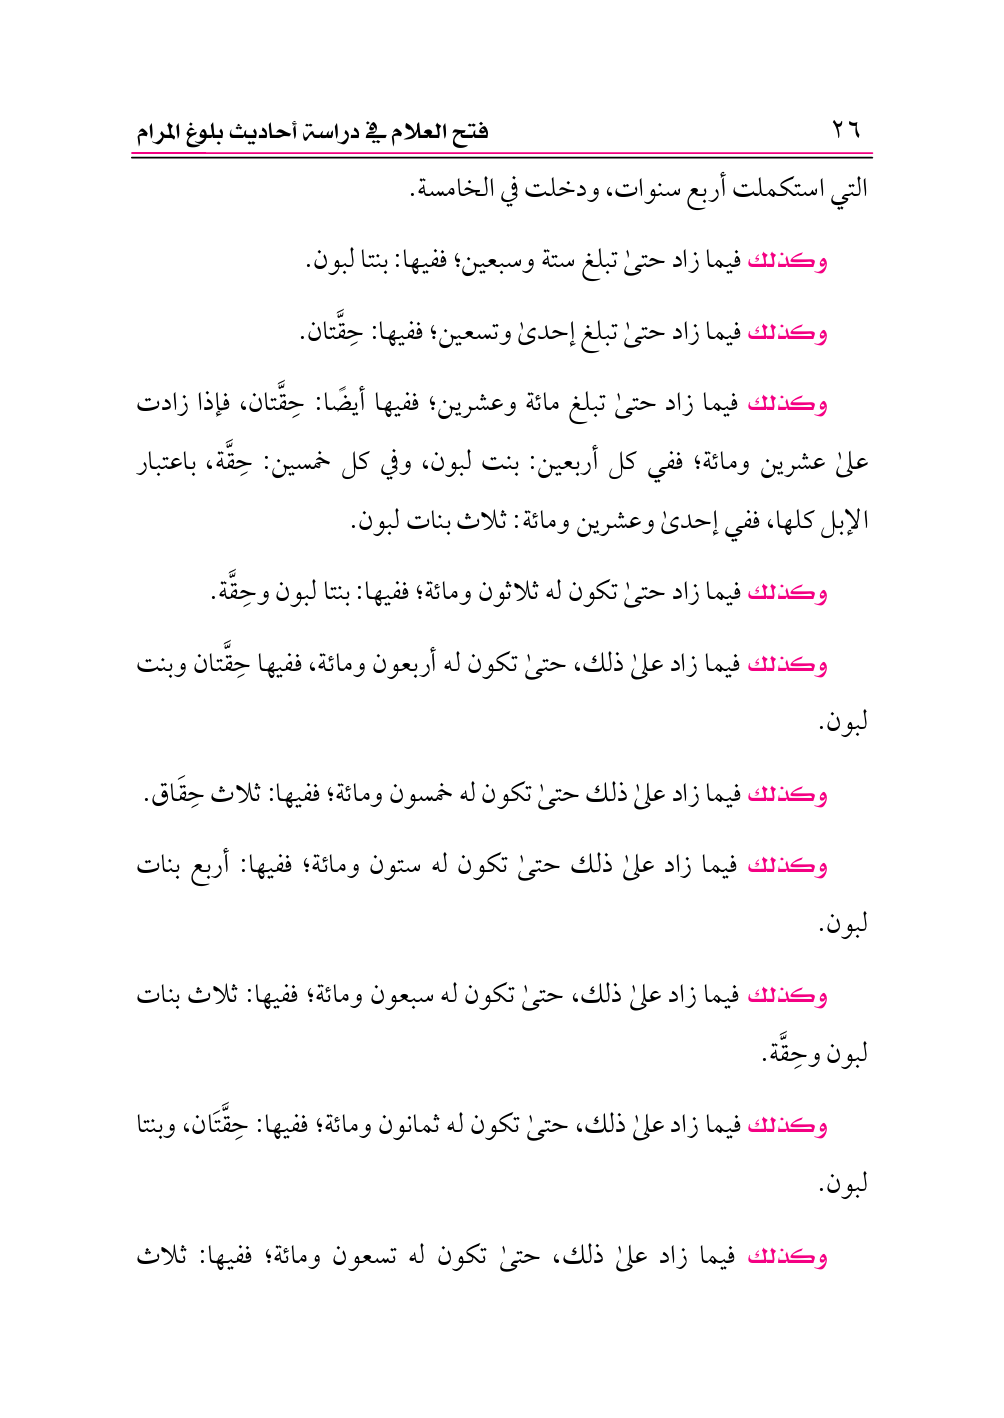 ٢٦ فتح العلام في دراسة أحاديث بلوغ المرام
التي استكملت أربع سنوات، ودخلت في الخامسة.
وكذلك فيما زاد حتىٰ تبلغ ستة وسبعين؛ ففيها: بنتا لبون.
وكذلك فيما زاد حتىٰ تبلغ إحدىٰ وتسعين؛ ففيها: حِقَّتان.
وكذلك فيما زاد حتىٰ تبلغ مائة وعشرين؛ ففيها أيضًا: حِقَّتان، فإذا زادت
علىٰ عشرين ومائة؛ ففي كل أربعين: بنت لبون، وفي كل خمسين: حِقَّة، باعتبار
الإبل كلها، ففي إحدىٰ وعشرين ومائة: ثلاث بنات لبون.
وكذلك فيما زاد حتىٰ تكون له ثلاثون ومائة؛ ففيها: بنتا لبون وحِقَّة.
وكذلك فيما زاد علىٰ ذلك، حتىٰ تكون له أربعون ومائة، ففيها حِقَّتان وبنت
لبون.
وكذلك فيما زاد علىٰ ذلك حتىٰ تكون له خمسون ومائة؛ ففيها: ثلاث حِقَاق.
وكذلك فيما زاد علىٰ ذلك حتىٰ تكون له ستون ومائة؛ ففيها: أربع بنات
لبون.
وكذلك فيما زاد علىٰ ذلك، حتىٰ تكون له سبعون ومائة؛ ففيها: ثلاث بنات
لبون وحِقَّة.
وكذلك فيما زاد علىٰ ذلك، حتىٰ تكون له ثمانون ومائة؛ ففيها: حِقَّتَان، وبنتا
لبون.
وكذلك فيما زاد علىٰ ذلك، حتىٰ تكون له تسعون ومائة؛ ففيها: ثلاث